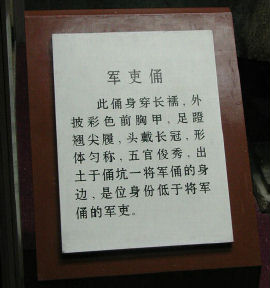 军吏俑
此俑身穿长襦，外
披彩色前胸甲，足蹬
翘尖履，头戴长冠，形
体匀称，五官俊秀，出
土于俑坑一将军俑的身
边，是位身份低于将军
俑的军吏。